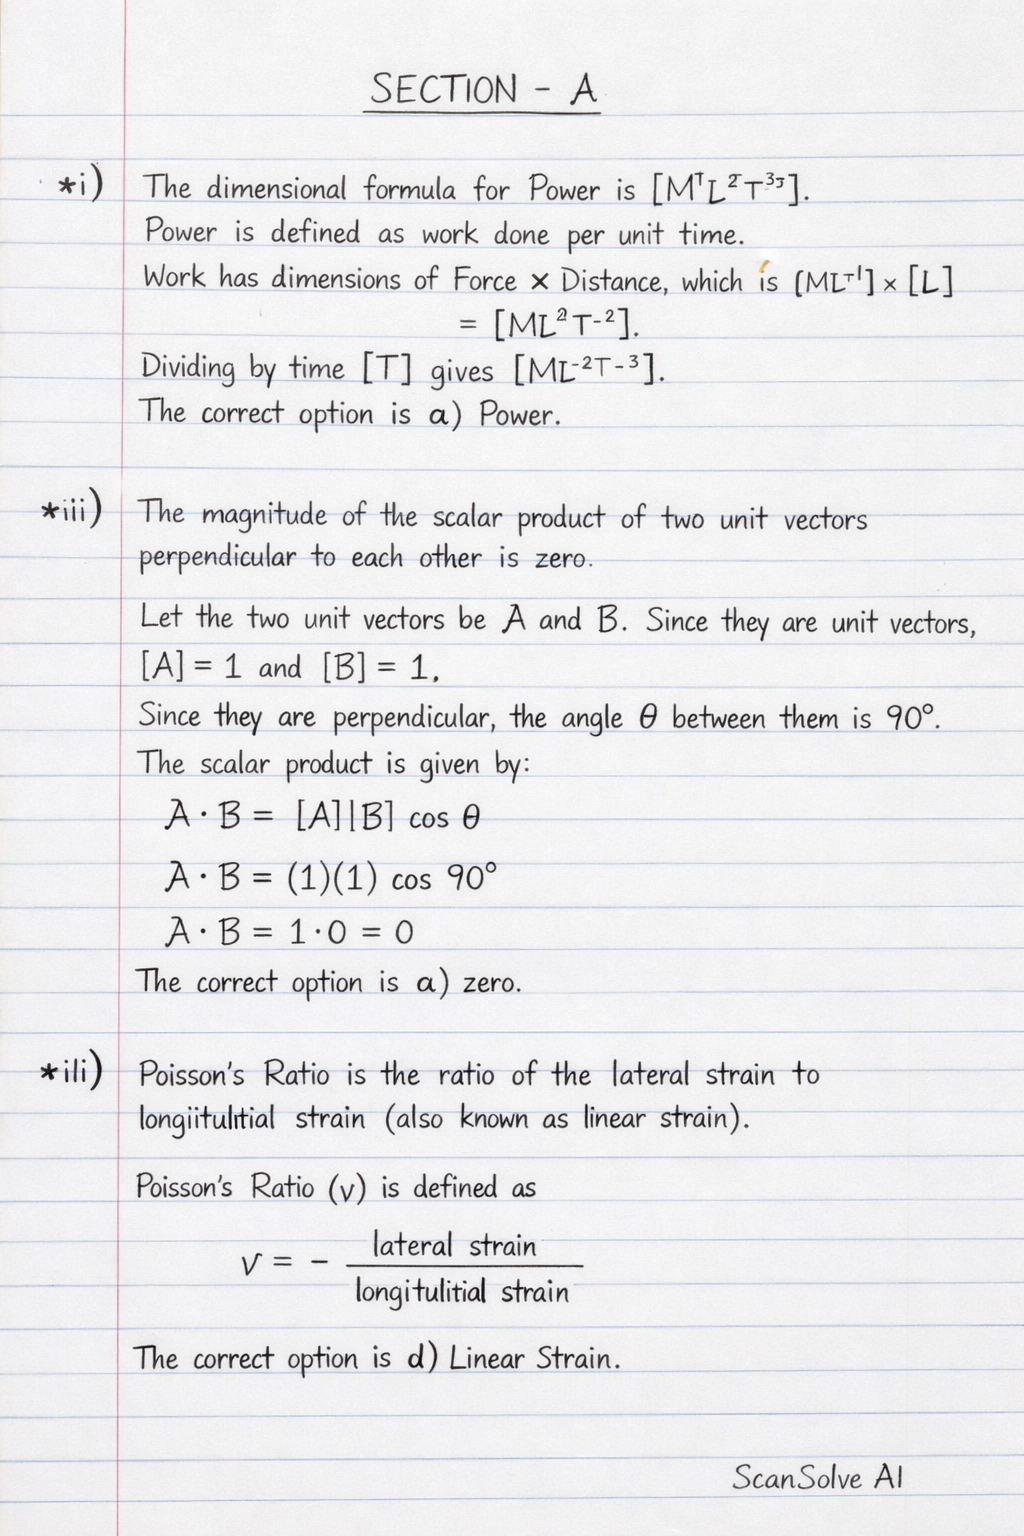 SECTION - A
*i) The dimensional formula for Power is [M†L²T³ᴶ].
Power is defined as work done per unit time.
Work has dimensions of Force × Distance, which is [ML⁻¹] × [L]
= [ML²T-²].
Dividing by time [T] gives [ML⁻²T-³].
The correct option is a) Power.
*iii) The magnitude of the scalar product of two unit vectors
perpendicular to each other is zero.
Let the two unit vectors be A and B. Since they are unit vectors,
[A] = 1 and [B] = 1.
Since they are perpendicular, the angle θ between them is 90°.
The scalar product is given by:
A · B = [A]|B] cos θ
A · B = (1)(1) cos 90°
A · B = 1·0 = 0
The correct option is a) zero.
*ili) Poisson's Ratio is the ratio of the lateral strain to
longiitulitial strain (also known as linear strain).
Poisson's Ratio (v) is defined as
v = - lateral strain
longitulitial strain
The correct option is d) Linear Strain.
ScanSolve AI